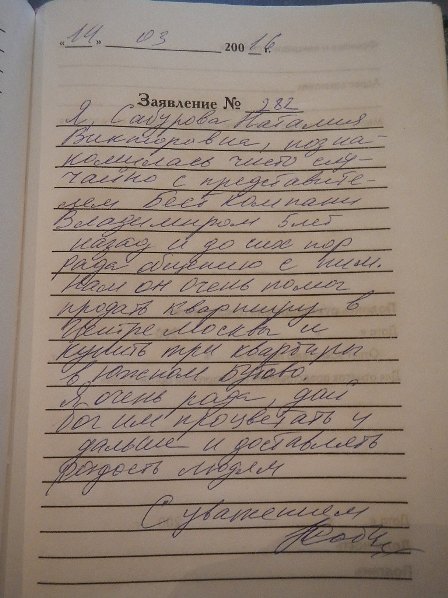 "14" 03 200 16 г.
Заявление № 282
Я, Сабурова Наталия
Викторовна, позна-
комилась чисто слу-
чайно с представите-
лем Бест компани
Владимиром 5 лет
назад и до сих пор
рада общению с ним.
Нам он очень помог
продать квартиру в
Центре Москвы и
купить три квартиры
в Южном Бутово.
Я очень рада, дай
бог им процветать и
дальше и доставлять
радость людям
С уважением